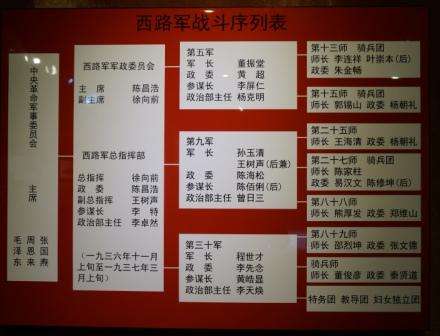 西路军战斗序列表
中央革命军事委员会
主席
毛泽东
周恩来
张国焘
西路军军政委员会
主 席 陈昌浩
副主席 徐向前
西路军总指挥部
总指挥 徐向前
政 委 陈昌浩
副总指挥 王树声
参谋长 李 特
政治部主任 李卓然
(一九三六年十一月
上旬至一九三七年三
月上旬)
第五军
军 长 董振堂
政 委 黄 超
参谋长 李屏仁
政治部主任 杨克明
第九军
军 长 孙玉清
王树声(后兼)
政 委 陈海松
参谋长 陈伯俐(后)
政治部主任 曾日三
第三十军
军 长 程世才
政 委 李先念
参谋长 黄皓显
政治部主任 李天焕
第十三师 骑兵团
师长 李连祥 叶崇本(后)
政委 朱金畅
第十五师 骑兵团
师长 郭锡山 政委 杨朝礼
第二十五师
师长 王海清 政委 杨朝礼
第二十七师 骑兵团
师长 陈家柱
政委 易汉文 陈修坤(后)
第八十八师
师长 熊厚发 政委 郑维山
第八十九师
师长 邵烈坤 政委 张文德
骑兵师
师长 董俊彦 政委 秦贤道
特务团 教导团 妇女独立团